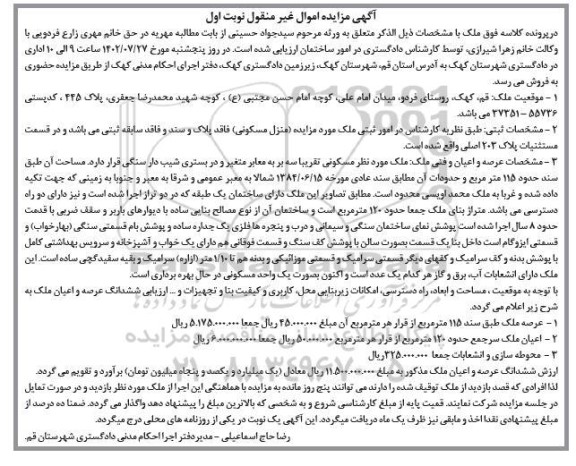 آگهی مزایده اموال غیر منقول نوبت اول
درپرونده کلاسه فوق ملک با مشخصات ذیل الذکر متعلق به ورثه مرحوم سیدجواد حسینی از بابت مطالبه مهریه در حق خانم مهری زارع فردویی با
وکالت خانم زهرا شیرازی، توسط کارشناس دادگستری در امور ساختمان ارزیابی شده است. در روز پنجشنبه مورخ ۱۴۰۲/۰۷/۲۷ ساعت ۹ الی ۱۰ اداری
در دادگستری شهرستان کهک به آدرس استان قم، شهرستان کهک، زیرزمین دادگستری کهک، دفتر اجرای احکام مدنی کهک از طریق مزایده حضوری
به فروش می رسد.
۱ – موقعیت ملک: قم، کهک، روستای فردو، میدان امام علی، کوچه امام حسن مجتبی (ع) ، کوچه شهید محمدرضا جعفری، پلاک ۴۴۵ ، کدپستی
۵۵۷۳۶ – ۳۷۳۵۱ می باشد.
۲ – مشخصات ثبتی: طبق نظریه کارشناس در امور ثبتی ملک مورد مزایده (منزل مسکونی) فاقد پلاک و سند و فاقد سابقه ثبتی می باشد و در قسمت
مستثنیات پلاک ۲۰۳ اصلی واقع شده است.
۳ – مشخصات عرصه و اعیان و فنی ملک: ملک مورد نظر مسکونی تقریبا سه بر به معابر متغیر و در بستری شیب دار سنگی قرار دارد. مساحت آن طبق
سند حدود ۱۱۵ متر مربع و حدودات آن مطابق سند عادی مورخه ۱۳۸۴/۰۶/۱۵ شمالا به معبر عمومی و شرقا به معبر و جنوبا به زمینی که جهت تکیه
داده شده و غربا به ملک محمد اویسی محدود است. مطابق تصاویر این ملک دارای ساختمان یک طبقه که در دو تراز اجرا شده است و نیز دارای دو راه
دسترسی می باشد. متراژ بنای ملک جمعا حدود ۱۲۰ مترمربع است و ساختمان آن از نوع مصالح بنایی ساده با دیوارهای باربر و سقف ضربی با قدمت
حدود ۸ سال اجرا شده است پوشش نمای ساختمان سنگی و سیمانی و درب و پنجره ها فلزی یک جداره ساده و پوشش بام قسمتی سنگی (بهارخواب) و
قسمتی ایزوگام است داخل بنا یک قسمت بصورت سالن با پوشش کف سنگ و قسمت فوقانی هم دارای یک خواب و آشپزخانه و سرویس بهداشتی کامل
با پوشش بدنه و کف سرامیک و کفهای دیگر قسمتی سرامیک و قسمتی موزائیکی و بدنه هم تا ۱/۱۰ متر (ازاره) سرامیک و بقیه سفیدگچی ساده است. این
ملک دارای انشعابات آب، برق و گاز هر کدام یک عدد است و اکنون بصورت یک واحد مسکونی در حال بهره برداری است.
با توجه به موقعیت ، مساحت و ابعاد، راه دسترسی، امکانات زیربنایی محل، کاربری و کیفیت بنا و تجهیزات و ... ارزیابی ششدانگ عرصه و اعیان ملک به
شرح زیر اعلام می گردد.
۱ – عرصه ملک طبق سند ۱۱۵ مترمربع از قرار هر مترمربع آن مبلغ ۴۵.۰۰۰.۰۰۰ ریال جمعا ۵.۱۷۵.۰۰۰.۰۰۰ ریال
۲ – اعیان ملک سرجمع حدود ۱۲۰ مترمربع از قرار هر مترمربع ۵۰.۰۰۰.۰۰۰ ریال جمعا ۶.۰۰۰.۰۰۰.۰۰۰ ریال
۳ – محوطه سازی و انشعابات جمعا ۳۲۵.۰۰۰.۰۰۰ ریال
ارزش ششدانگ عرصه و اعیان ملک مذکور به مبلغ ۱۱.۵۰۰.۰۰۰.۰۰۰ ریال معادل (یک میلیارد و یکصد و پنجاه میلیون تومان) برآورد و تقویم می گردد.
لذا افرادی که قصد بازدید از ملک توقیف شده را دارند می توانند پنج روز مانده به مزایده با هماهنگی این اجرا از ملک مورد نظر بازدید و در صورت تمایل
در جلسه مزایده شرکت نمایند. قیمت پایه از مبلغ کارشناسی شروع و به شخصی که بالاترین مبلغ را پیشنهاد دهد واگذار می گردد. ضمنا ده درصد از
مبلغ پیشنهادی نقدا اخذ و مابقی نیز ظرف یک ماه دریافت میگردد. این آگهی یک نوبت در یکی از روزنامه های محلی درج میگردد.
رضا حاج اسماعیلی – مدیردفتر اجرا احکام مدنی دادگستری شهرستان قم.